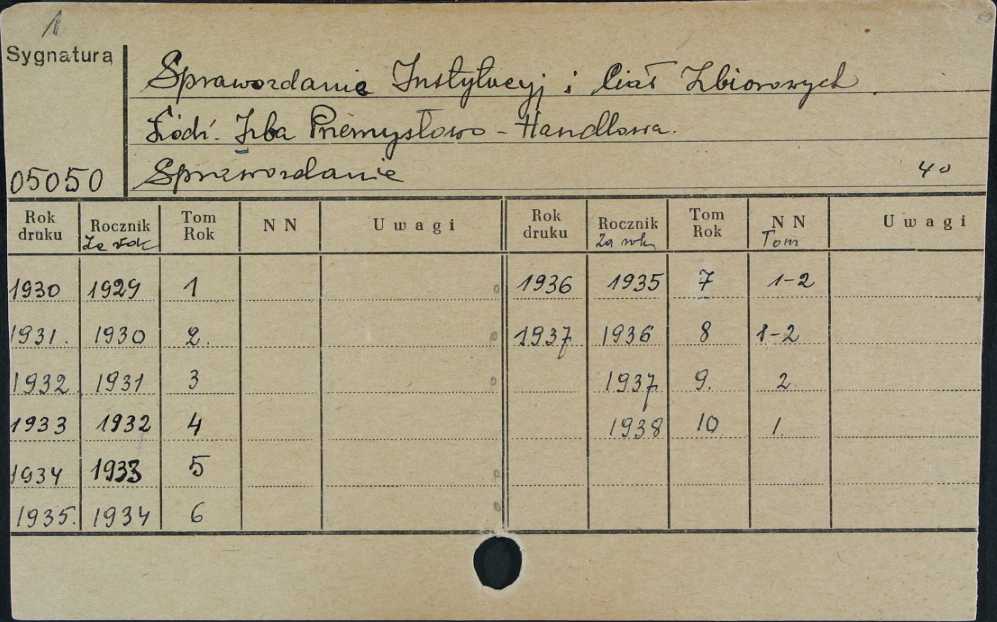 1
Sygnatura
Sprawozdanie Instytucyj i Ciał Zbiorowych.
Łódź. Izba Przemysłowo-Handlowa.
05050 Sprawozdanie 4o
Rok druku Rocznik Za rok Tom Rok NN Uwagi Rok druku Rocznik Za rok Tom Rok NN Tom Uwagi
1930 1929 1 1936 1935 7 1-2
1931. 1930 2. 1937 1936 8 1-2
1932 1931 3 1937 9. 2
1933 1932 4 1938 10 1
1934 1933 5
1935. 1934 6